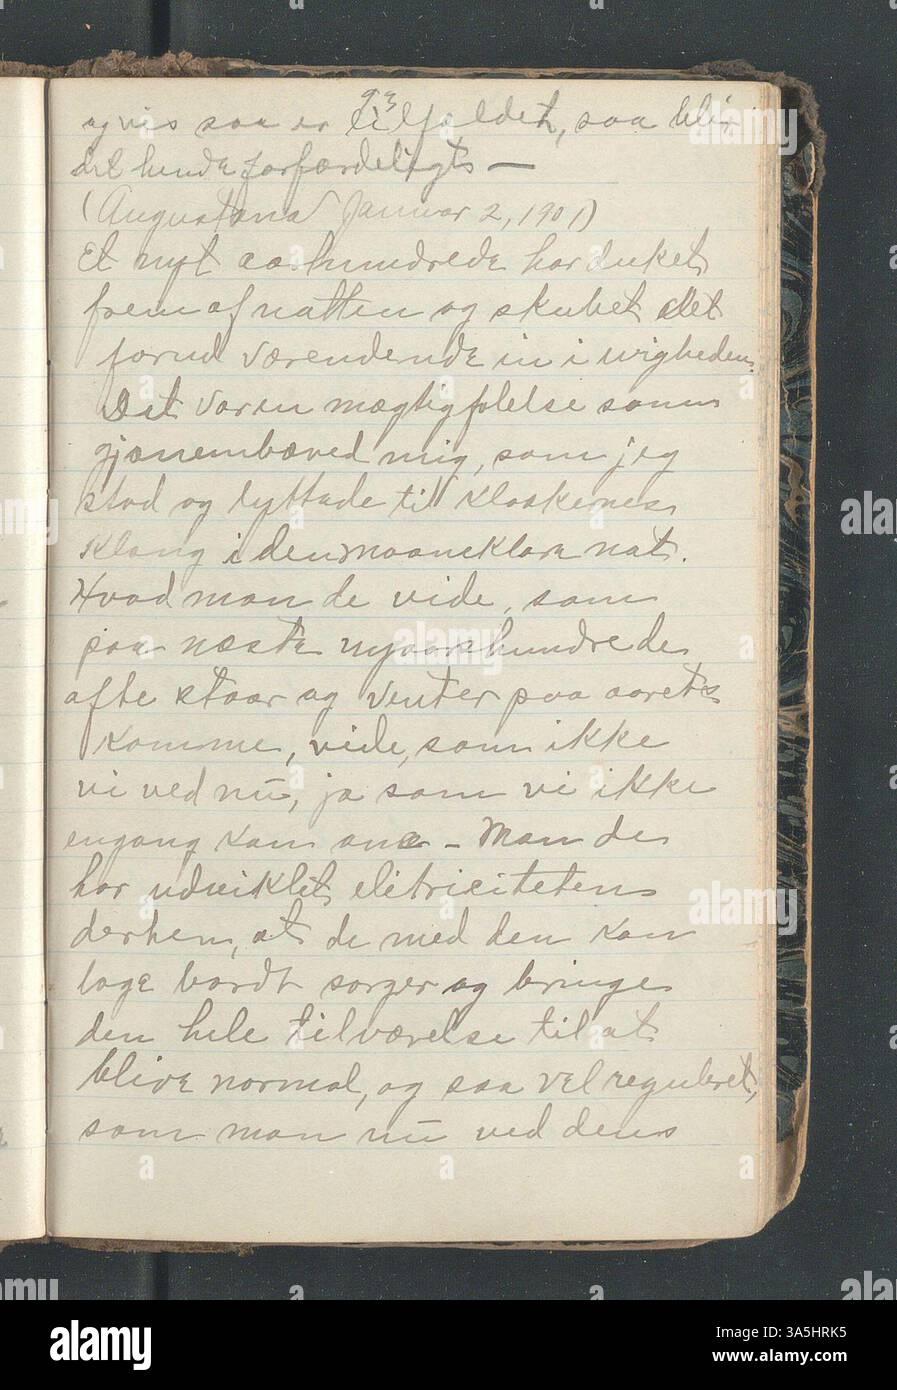 93
og vis saa er tilfældet, saa blir
det hende forfærdeligt —
(Augustana Januar 2, 1901)
Et nyt aarhundrede har dukket
frem af natten og skubet det
forud værendende in i uigheden.
Det var en mægtig følelse som
gjænembæved mig, som jeg
stod og lyttede til Klokkernes
Klang i den maaneklare nat.
Hvad mon de vide, som
paa næste nyaarshundrede
atte staar og venter paa aarets
komme, vide, som ikke
vi ved nū, ja som vi ikke
engang kan ane – Mon de
har udviklet eletriciteten
derhen, at de med den kan
tage bordt sorger og bringe
den hele tilværelse til at
blive normal, og saa vel reguleret,
som man nū ved dens
alamy
Image ID: 3A5HRK5
www.alamy.com